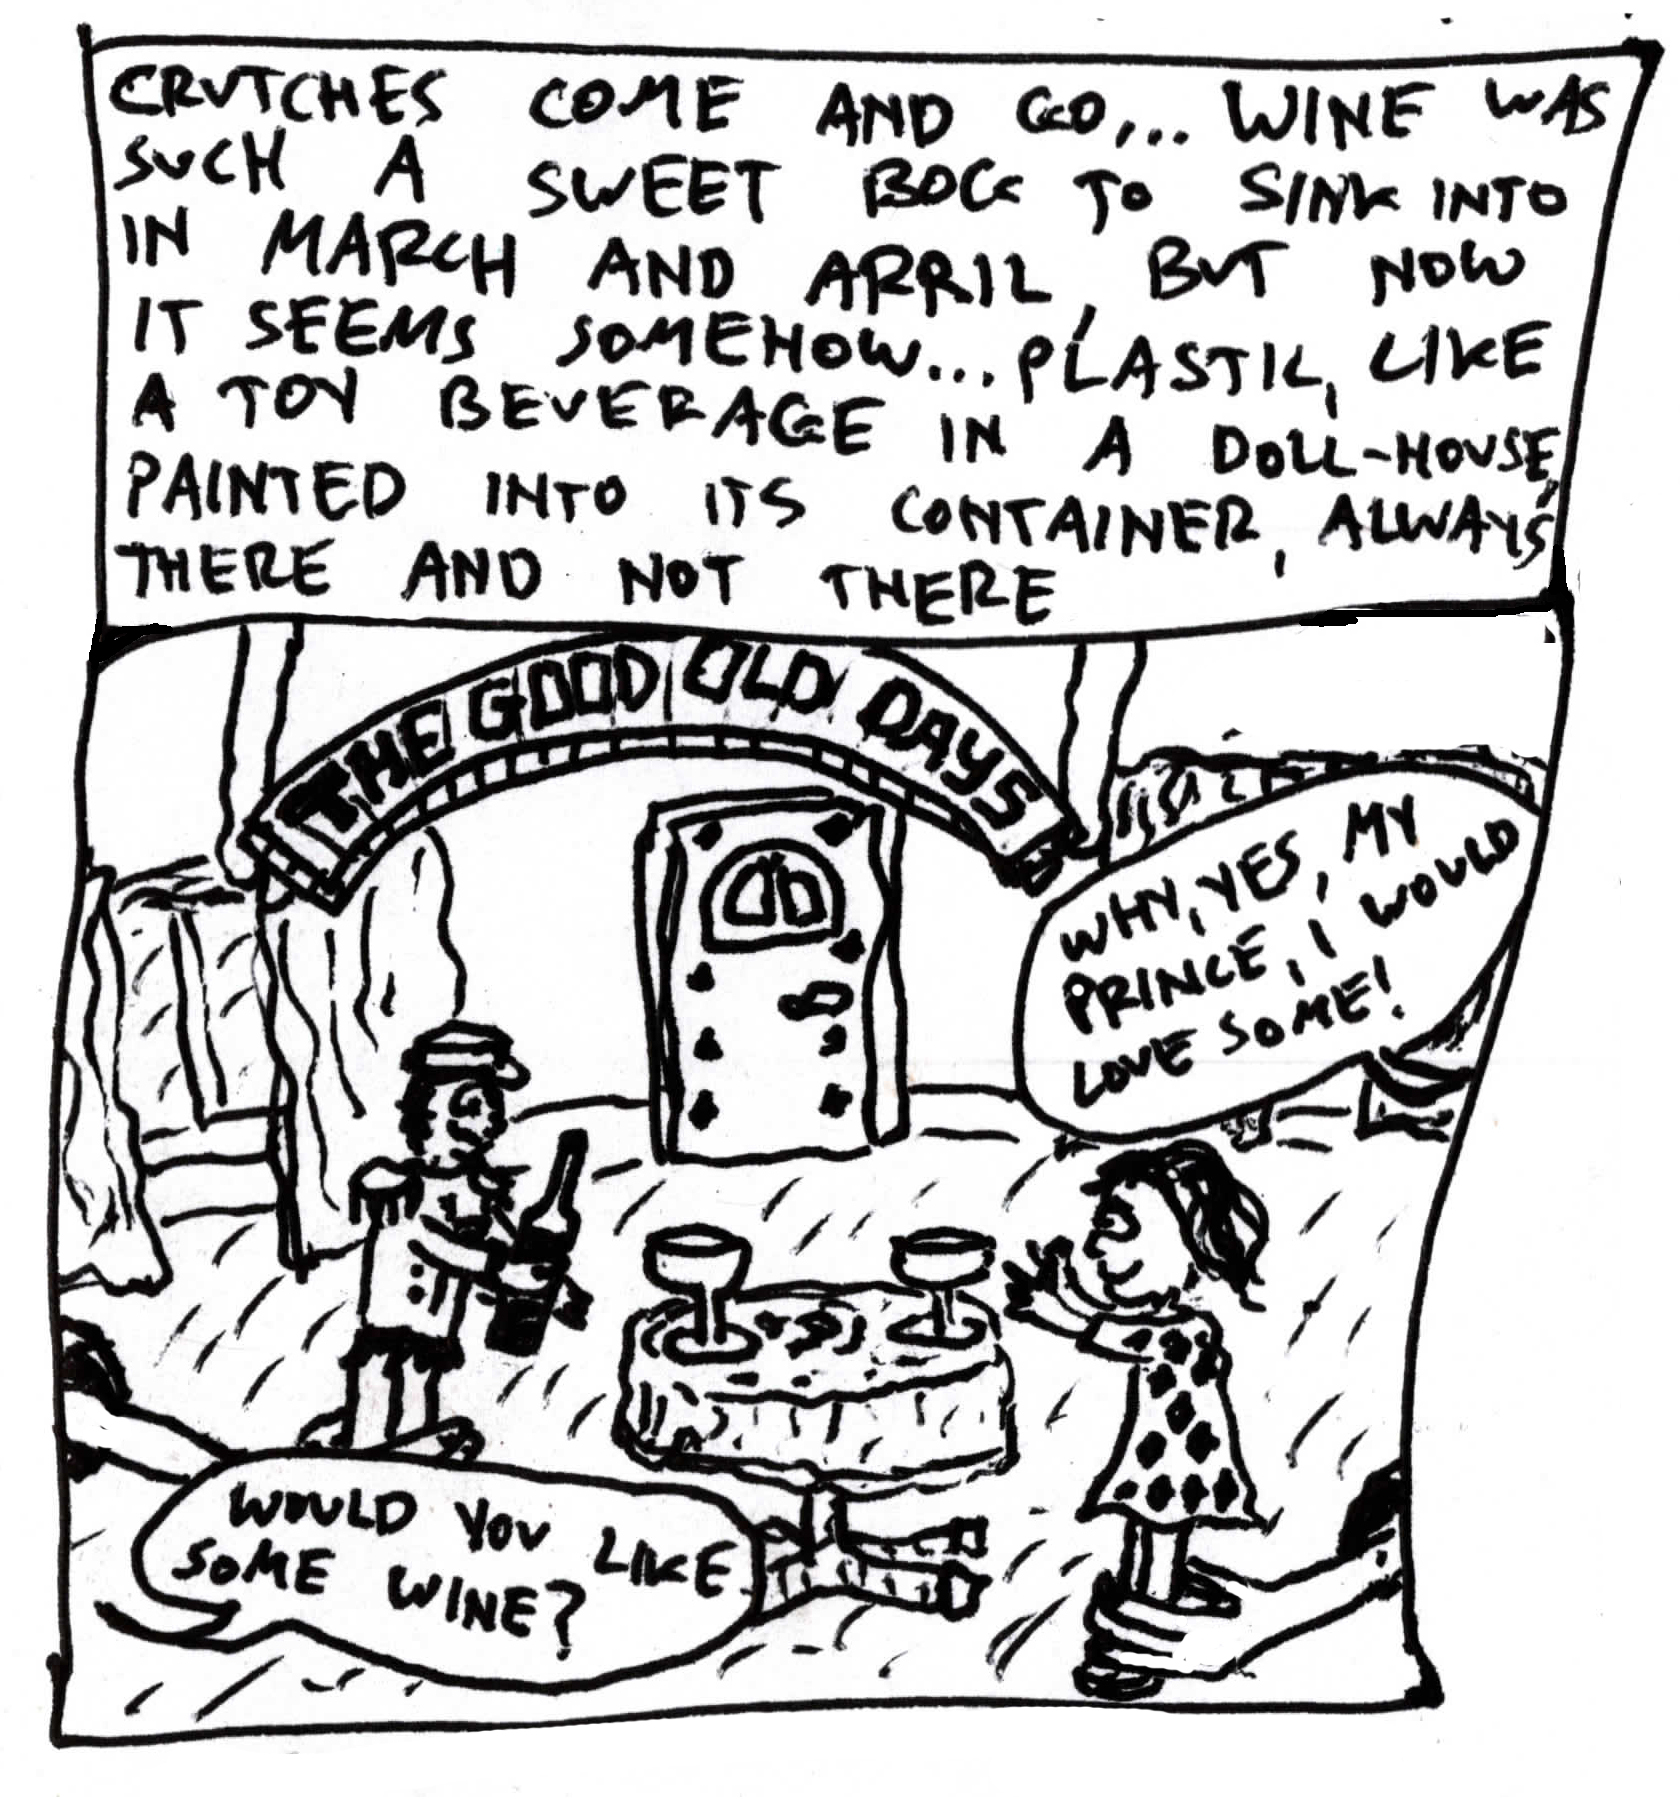 CRUTCHES COME AND GO,... WINE WAS
SUCH A SWEET BOG TO SINK INTO
IN MARCH AND APRIL, BUT NOW
IT SEEMS SOMEHOW... PLASTIC, LIKE
A TOY BEVERAGE IN A DOLL-HOUSE,
PAINTED INTO ITS CONTAINER, ALWAYS
THERE AND NOT THERE
THE GOOD OLD DAYS
WHY, YES, MY
PRINCE, I WOULD
LOVE SOME!
WOULD YOU LIKE
SOME WINE?